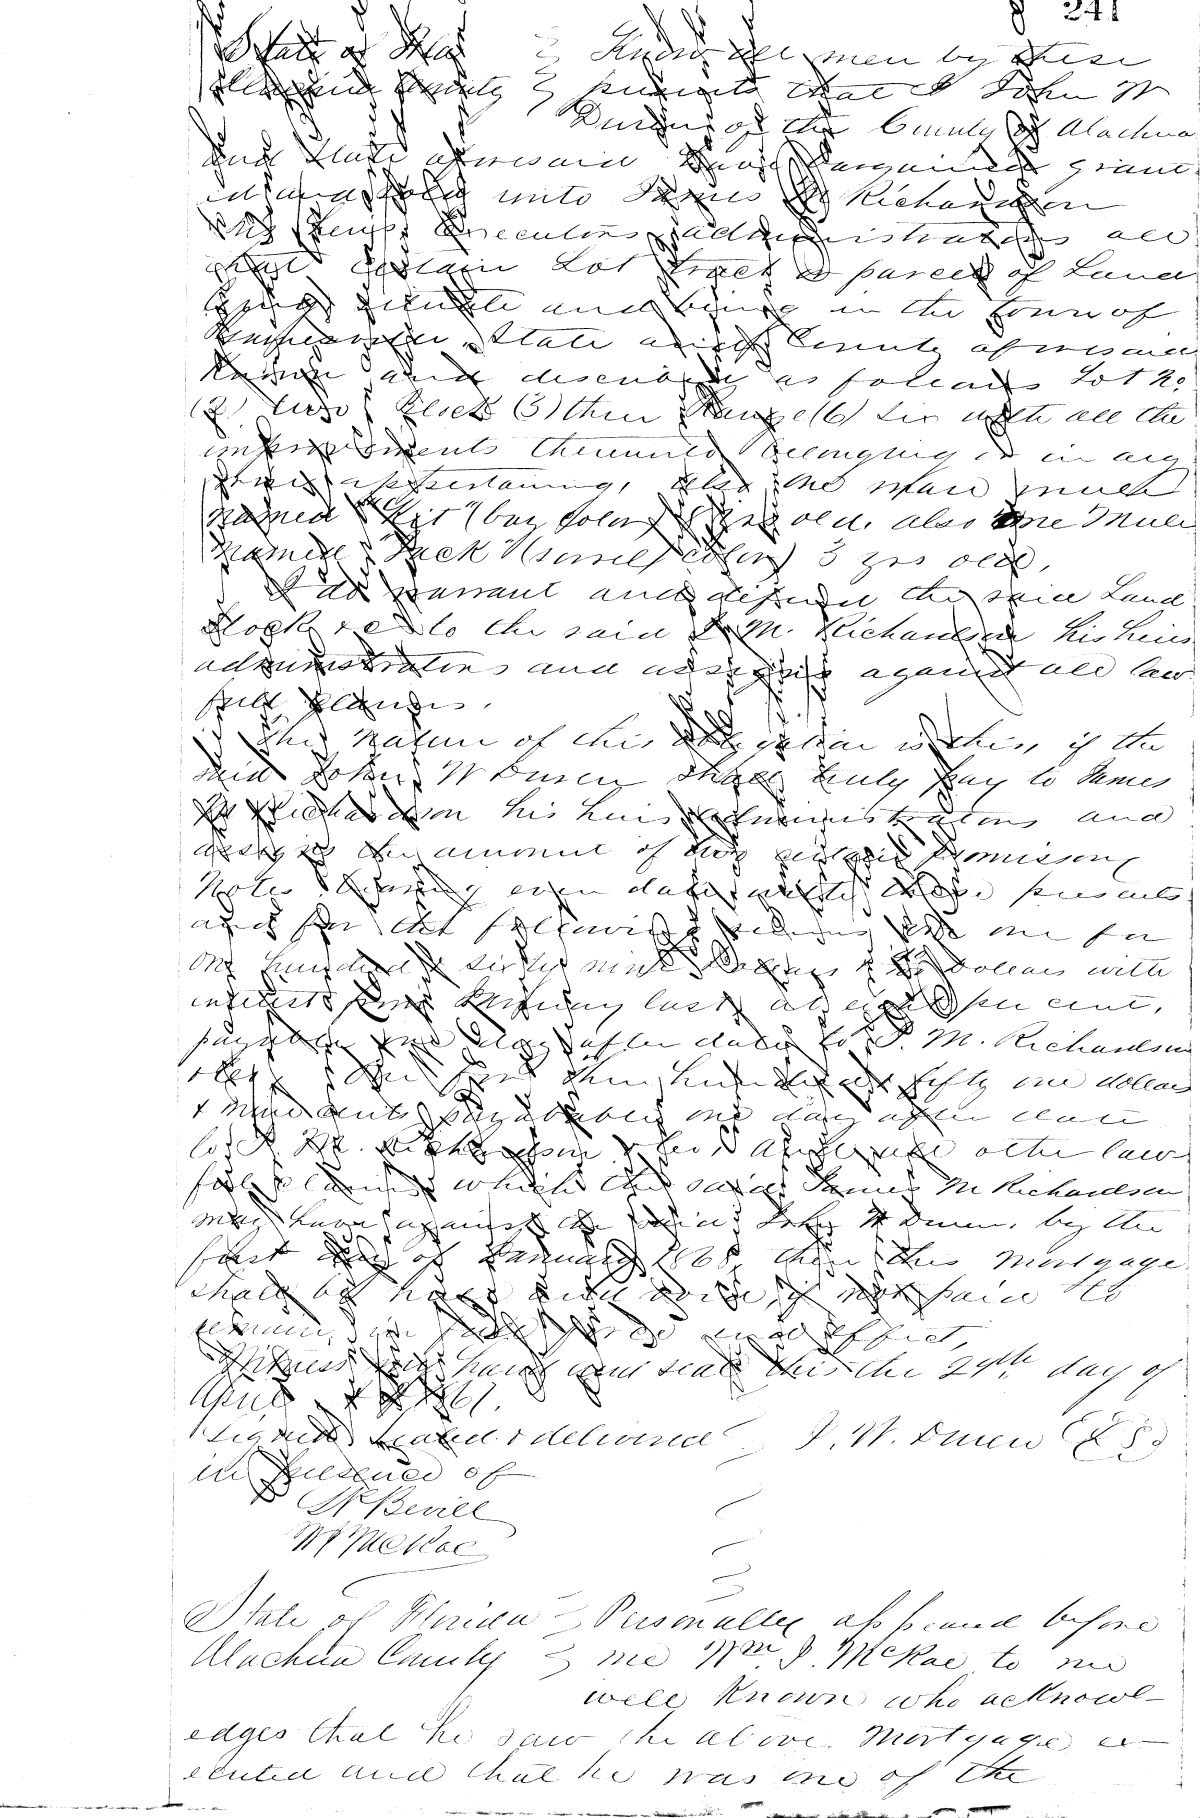 241
State of Fla Know all men by these
Alachua County presents that I John W
Duren of the County of Alachua
and State aforesaid have bargained grant
ed and sold unto James M Richardson
his heirs Executors administrators all
that certain Lot tract or parcel of Land
lying situate and being in the town of
Gainesville State and County aforesaid
Known and described as follows Lot No.
(2) two Block (3) three Range (6) Six with all the
improvements thereunto belonging or in any
wise appertaining, also one mare mule
named "Kit" (bay Color) yrs old. also one Mule
named "Jack" (sorrel color) 3 yrs old,
I do warrant and defend the said Land
Stock to the said J. M. Richardson his heirs
administrators and assigns against all law
full claims.
The nature of this obligation is this, if the
said John W Duren shall truly pay to James
M Richardson his heirs administrators and
assigns the amount of two certain promissory
Notes bearing even date with these presents
and for the following sums one for
one hundred & sixty nine Dollars with
interest from January last at eight per cent,
payable one day after date to J. M. Richardson
three hundred & fifty one dollars
& nine cents payabable one day after date
to J. M. Richardson and all other law
full claims which the said James M Richardson
may have against the said John W Duren, by the
first day of January 1868 then this mortgage
shall be null and void, if not paid to
remain in full force and effect,
Witness my hand and seal this the 29th day of
April 1867.
Signed sealed & delivered J. W. Duren (L S)
in presence of
Bevill
W J McRae
State of Florida Personally appeared before
Alachua County me Wm. J. McRae to me
well Known who acknowl-
edges that he saw the above Mortgage ex-
ecuted and that he was one of the